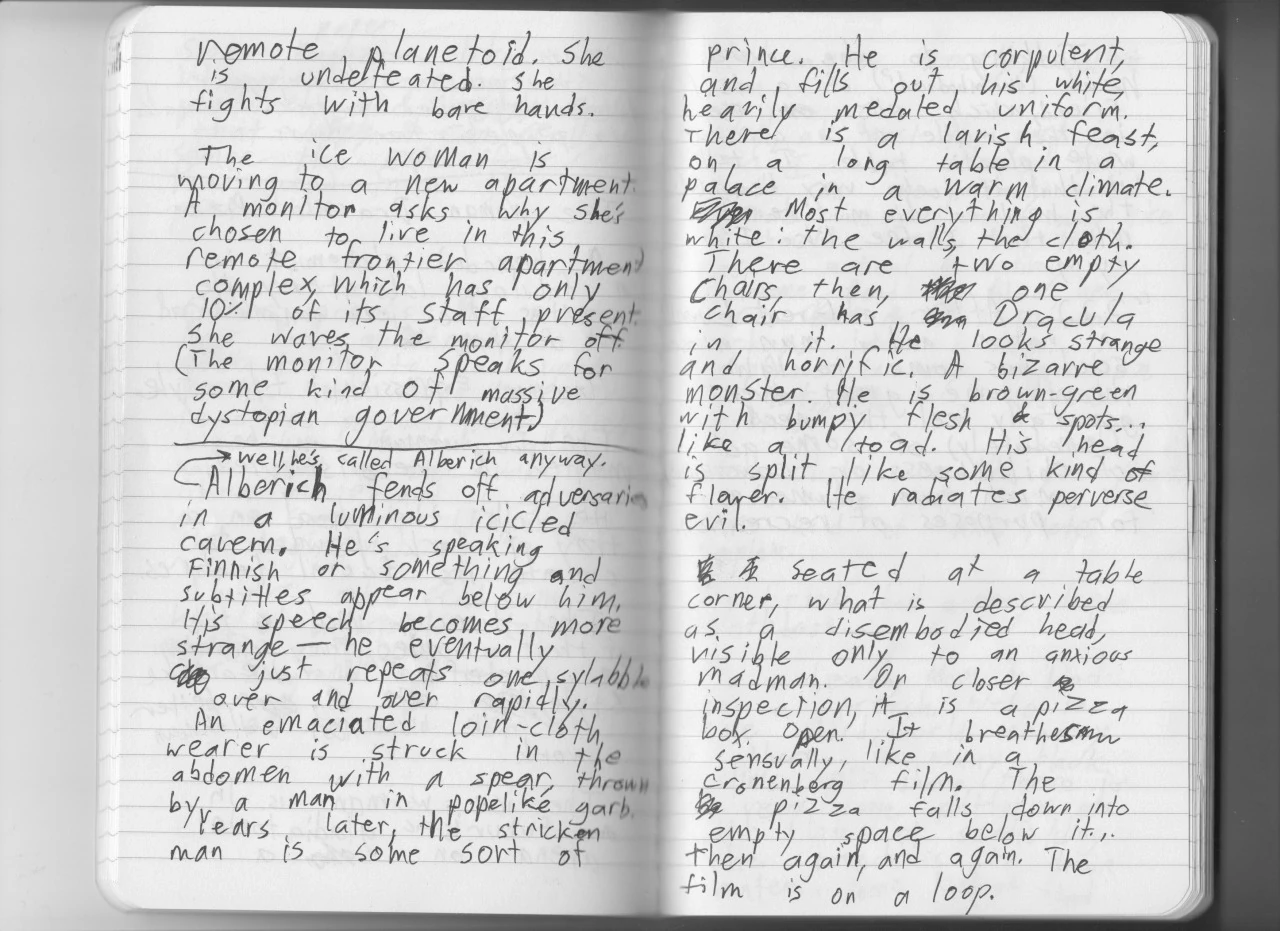 remote planetoid. She
is undefeated. She
fights with bare hands.
The ice woman is
moving to a new apartment.
A monitor asks why she's
chosen to live in this
remote frontier apartment
complex, which has only
10% of its staff present.
She waves the monitor off.
(The monitor speaks for
some kind of massive
dystopian government.)
well, he's called Alberich anyway.
Alberich fends off adversaries
in a luminous icicled
cavern. He's speaking
Finnish or something and
subtitles appear below him.
His speech becomes more
strange — he eventually
just repeats one sylabble
over and over rapidly.
An emaciated loin-cloth
wearer is struck in the
abdomen with a spear, thrown
by a man in popelike garb.
Years later, the stricken
man is some sort of
prince. He is corpulent,
and fills out his white,
heavily medaled uniform.
There is a lavish feast,
on a long table in a
palace in a warm climate.
Most everything is
white: the walls, the cloth.
There are two empty
chairs, then, one
chair has Dracula
in it. He looks strange
and horrific. A bizarre
monster. He is brown-green
with bumpy flesh & spots...
like a toad. His head
is split like some kind of
flayer. He radiates perverse
evil.
Seated at a table
corner, what is described
as a disembodied head,
visible only to an anxious
madman. On closer
inspection, it is a pizza
box. Open. It breathes
sensually, like in a
Cronenberg film. The
pizza falls down into
empty space below it...
then again, and again. The
film is on a loop.